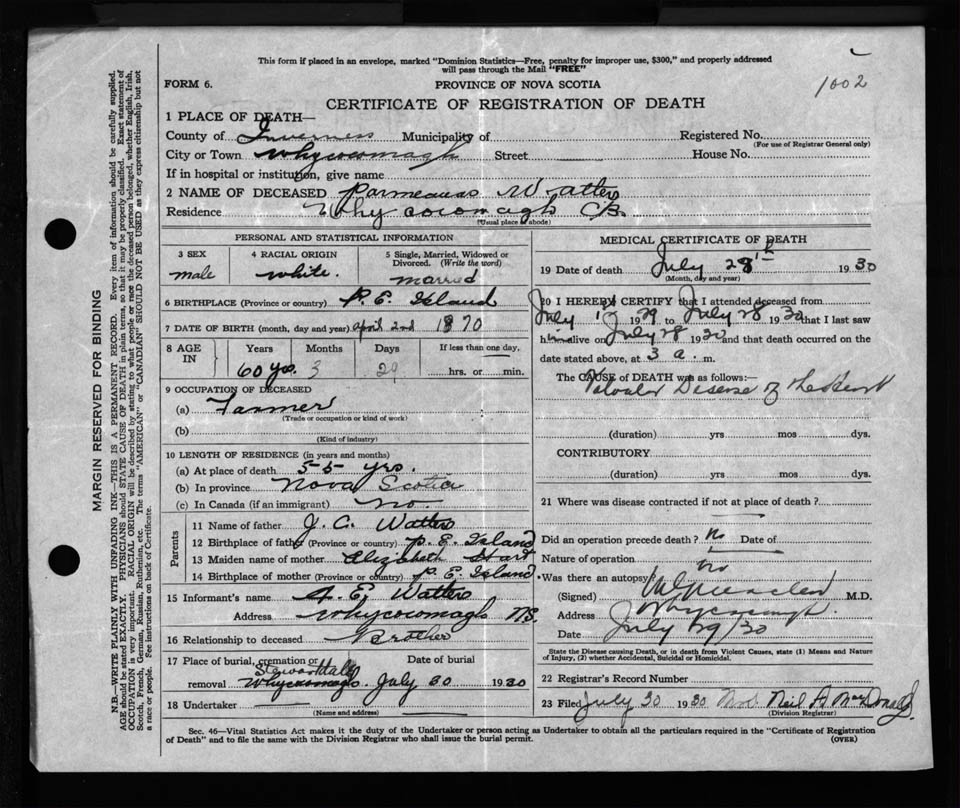 1002
This form if placed in an envelope, marked "Dominion Statistics—Free, penalty for improper use, $300," and properly addressed
will pass through the Mail "FREE"
FORM 6.
PROVINCE OF NOVA SCOTIA
CERTIFICATE OF REGISTRATION OF DEATH
1 PLACE OF DEATH—
County of Inverness Municipality of
Registered No.
(For use of Registrar General only)
City or Town Whycocomagh Street House No.
If in hospital or institution, give name
2 NAME OF DECEASED Watters
Residence Whycocomagh C/B.
(Usual place of abode)
PERSONAL AND STATISTICAL INFORMATION
3 SEX male
4 RACIAL ORIGIN white.
5 Single, Married, Widowed or Divorced. (Write the word) married
6 BIRTHPLACE (Province or country) P. E. Island
7 DATE OF BIRTH (month, day and year) April 2nd 1870
8 AGE IN
Years Months Days If less than one day,
60 yrs. 3 29 hrs. or min.
9 OCCUPATION OF DECEASED
(a) Farmer
(Trade or occupation or kind of work)
(b)
(Kind of industry)
10 LENGTH OF RESIDENCE (in years and months)
(a) At place of death 55 yrs.
(b) In province Nova Scotia
(c) In Canada (if an immigrant) no.
Parents
11 Name of father J. C. Watters
12 Birthplace of father (Province or country) P. E. Island
13 Maiden name of mother Elizabeth Hart
14 Birthplace of mother (Province or country) P. E. Island
15 Informant's name E. Watters
Address Whycocomagh NS.
16 Relationship to deceased Brother
17 Place of burial, cremation or removal Stewartdale Whycocomagh
Date of burial July 30 1930
18 Undertaker
(Name and address)
MEDICAL CERTIFICATE OF DEATH
19 Date of death July 28th 1930
(Month, day and year)
20 I HEREBY CERTIFY that I attended deceased from
July 1929 to July 28 1930 that I last saw
him alive on July 28 1930 and that death occurred on the
date stated above, at 3 a. m.
The CAUSE of DEATH was as follows:—
Valvular Disease of the Heart
(duration) yrs mos dys.
CONTRIBUTORY
(duration) yrs mos dys.
21 Where was disease contracted if not at place of death?
Did an operation precede death? No Date of
Nature of operation
Was there an autopsy? no
(Signed) M.D.
Address Whycocomagh.
Date July 29/30
State the Disease causing Death, or in death from Violent Causes, state (1) Means and Nature
of Injury, (2) whether Accidental, Suicidal or Homicidal.
22 Registrar's Record Number
23 Filed July 30 1930 Neil A MacDonald
(Division Registrar)
Sec. 46—Vital Statistics Act makes it the duty of the Undertaker or person acting as Undertaker to obtain all the particulars required in the "Certificate of Registration
of Death" and to file the same with the Division Registrar who shall issue the burial permit.
(OVER)
MARGIN RESERVED FOR BINDING
N.B.—WRITE PLAINLY WITH UNFADING INK—THIS IS A PERMANENT RECORD. Every item of information should be carefully supplied.
AGE should be stated EXACTLY. PHYSICIANS should STATE CAUSE OF DEATH in plain terms, so that it may be properly classified. Exact statement of
OCCUPATION is very important. RACIAL ORIGIN will be described by stating to what people or race the deceased person belonged, whether English, Irish,
Scotch, French, German, Russian, Ruthenian, etc. The terms "AMERICAN" or "CANADIAN" SHOULD NOT BE USED as they express citizenship but not
a race or people. Fee instructions on back of Certificate.